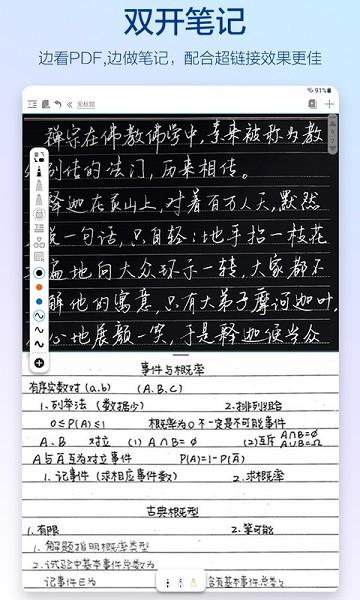 双开笔记
边看PDF,边做笔记，配合超链接效果更佳
91%
无标题
禅宗在佛教佛学中,素来被称为教
别传的法门,历来相传。
释迦在灵山上,对着百万人天,默然
说一句话,只自轻:地手拈一枝花
遍地向大众环示一转,大家都不
解他的寓意,只有大弟子摩诃迦叶,
心地展颜一笑,于是释迦便当众
事件与概率
有序实数对(a,b) (A,B,C)
1.列举法(数据少) 2.排列组合
0≤P(A)≤1 概率为0不一定是不可能事件
A、B 对立 (1) A∩B=φ (2)互斥 A∩B=φ A∪B=Ω
A与Ā互为对立事件 P(A)=1-P(Ā)
1.记事件(求相应事件数) 2.求概率
古典概型
1.有限 2.等可能
1.解题指明概率类型
2.试验中基本事件总数为
记事件E为 含有基本事件总数